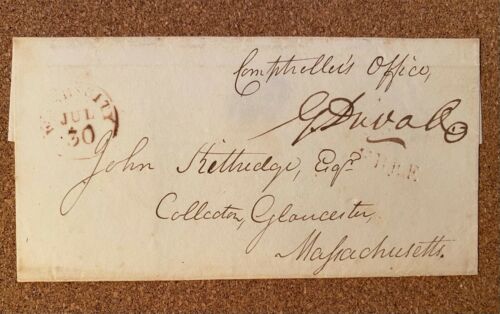 Comptroller's Office,
G Duvall
CITY
JUL
30
FREE
John Kittredge, Esqr.
Collector, Gloucester,
Massachusetts.